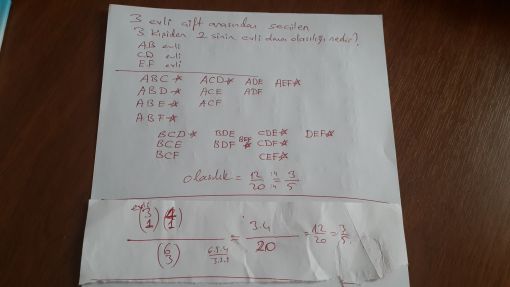 3 evli çift arasından seçilen
3 kişiden 2 sinin evli olma olasılığı nedir?
A.B evli
C.D evli
E.F evli
ABC☆ ACD☆ ADE AEF☆
ABD☆ ACE ADF
ABE☆ ACF
ABF☆
BCD☆ BDE BEF☆ CDE☆ DEF☆
BCE BDF CDF☆
BCF CEF☆
olasılık = 12/20 = 3/5
evli
(3 1) (4 1) / (6 3) = 3.4 / 20 = 12/20 = 3/5